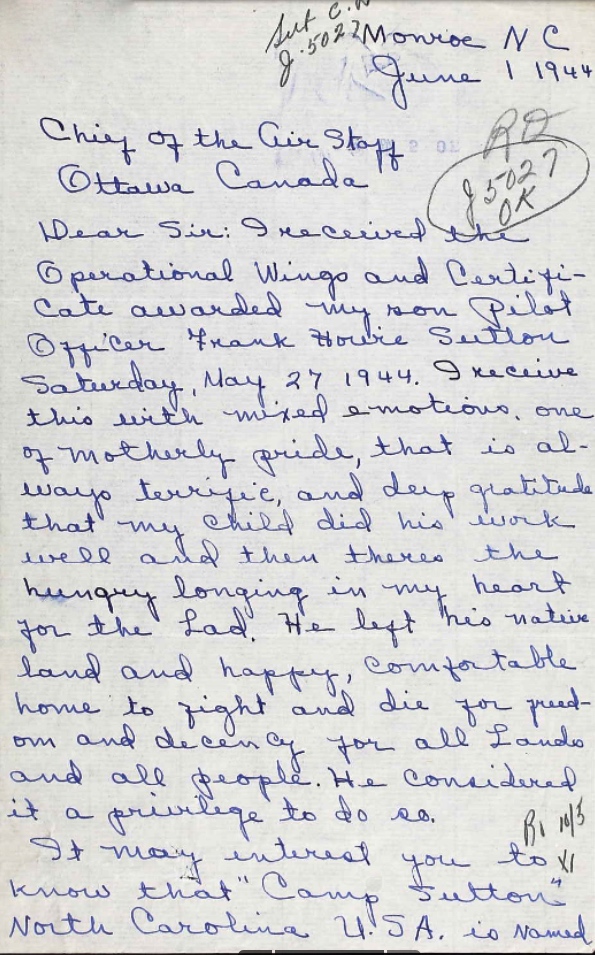 Sut C.
J.5027
Monroe N C
June 1 1944
Chief of the Air Staff
Ottawa Canada
RO
J5027
OK
Dear Sir: I received the
Operational Wings and Certifi-
cate awarded my son Pilot
Officer Frank Howie Sutton
Saturday, May 27 1944. I receive
this with mixed emotions, one
of Motherly pride, that is al-
ways terrific, and deep gratitude
that my child did his work
well and then theres the
hungry longing in my heart
for the Lad. He left his native
land and happy, comfortable
home to fight and die for freed-
om and decency for all Lands
and all people. He considered
it a privilege to do so.
B1 10/5
XI
It may interest you to
know that "Camp Sutton"
North Carolina U.SA. is Named